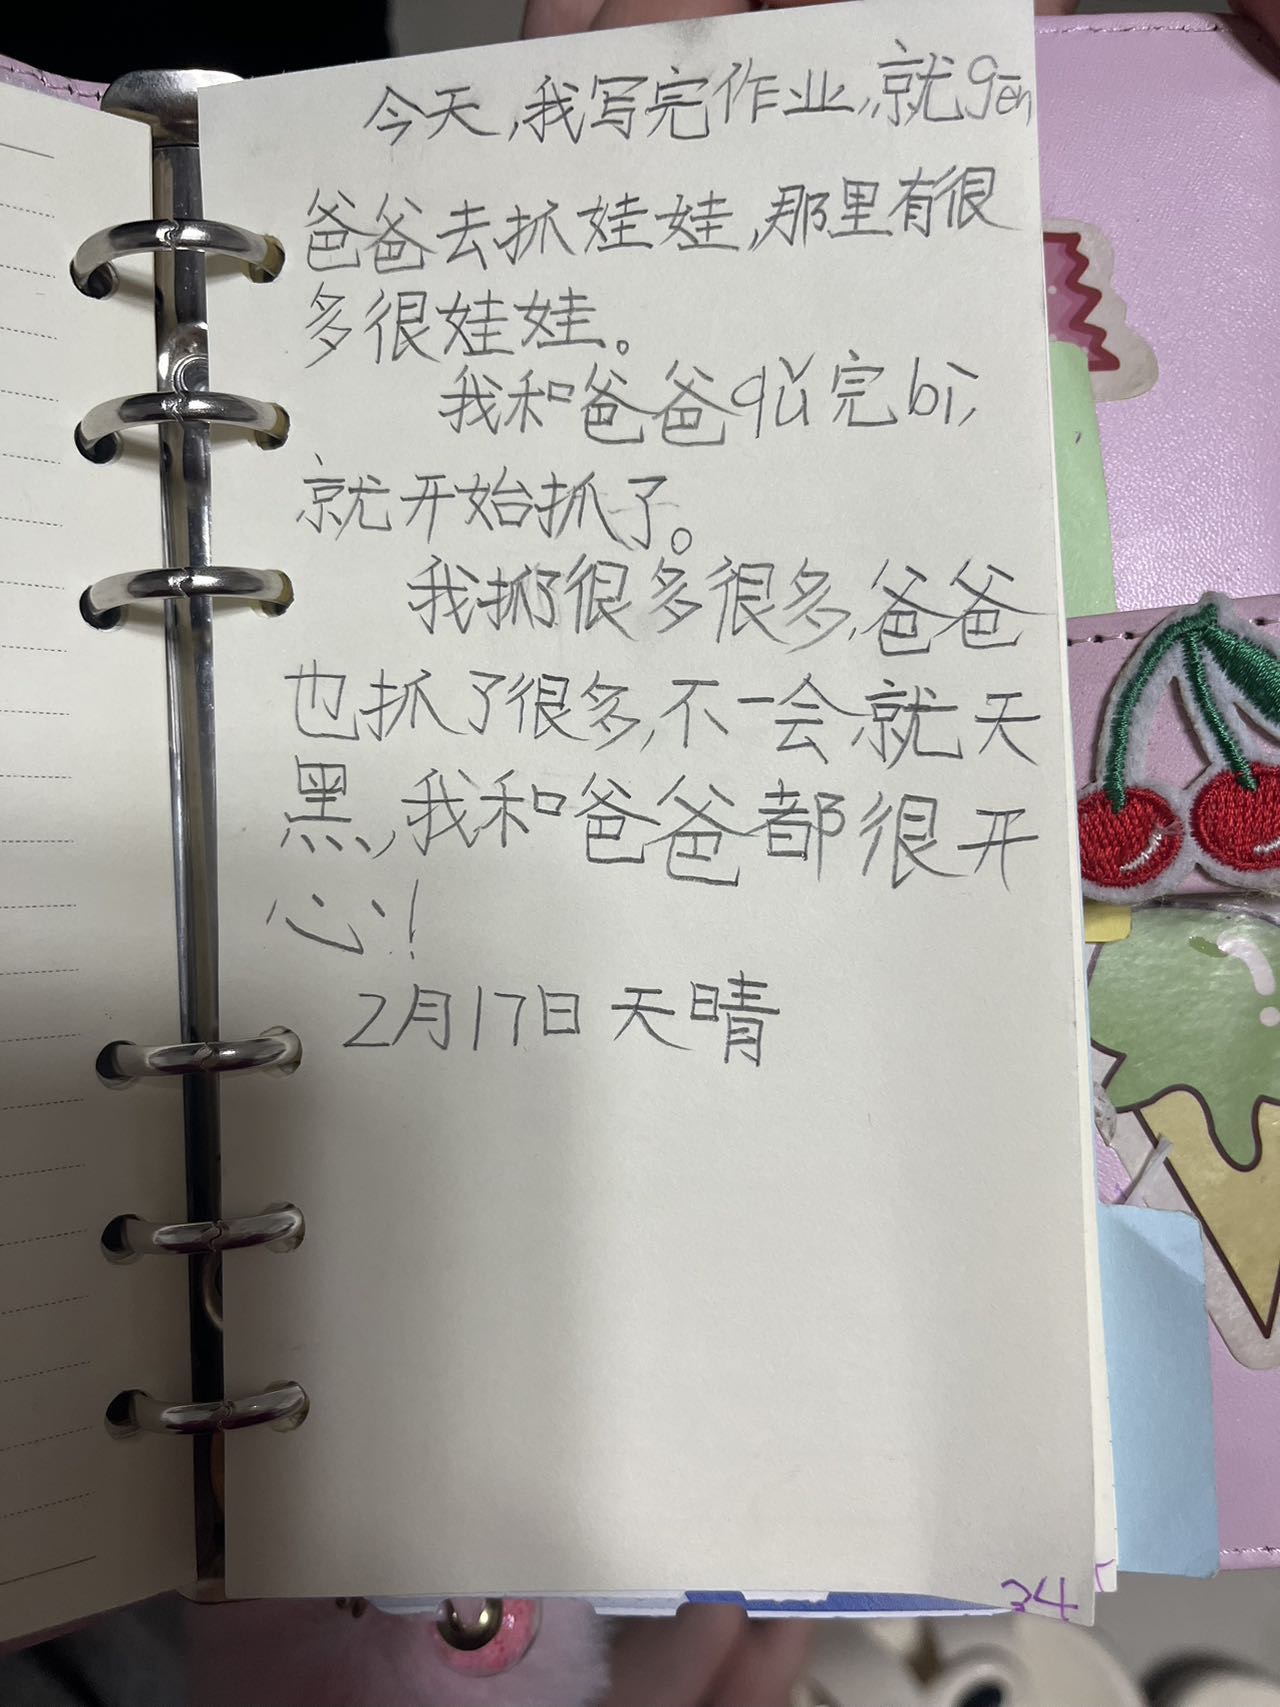 今天,我写完作业,就gēn
爸爸去抓娃娃,那里有很
多很娃娃。
我和爸爸qǔ完bì,
就开始抓了。
我抓了很多很多,爸爸
也抓了很多,不一会就天
黑,我和爸爸都很开
心!
2月17日 天晴
34